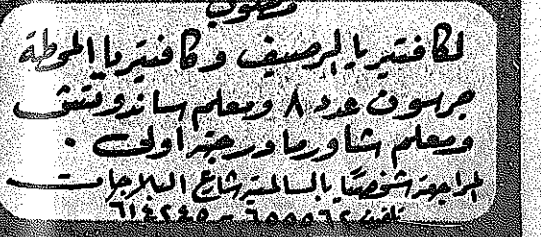 مطلوب
لكافتيريا الرصيف وكافتيريا المحطة
جرسون عدد ٨ ومعلم ساندوتش
ومعلم شاورما درجة أولى .
المراجعة شخصيًا بالسالمية شارع البلاجات
تلفون ٦٥٥٥٦٢ - ٦١٤٢٤٥